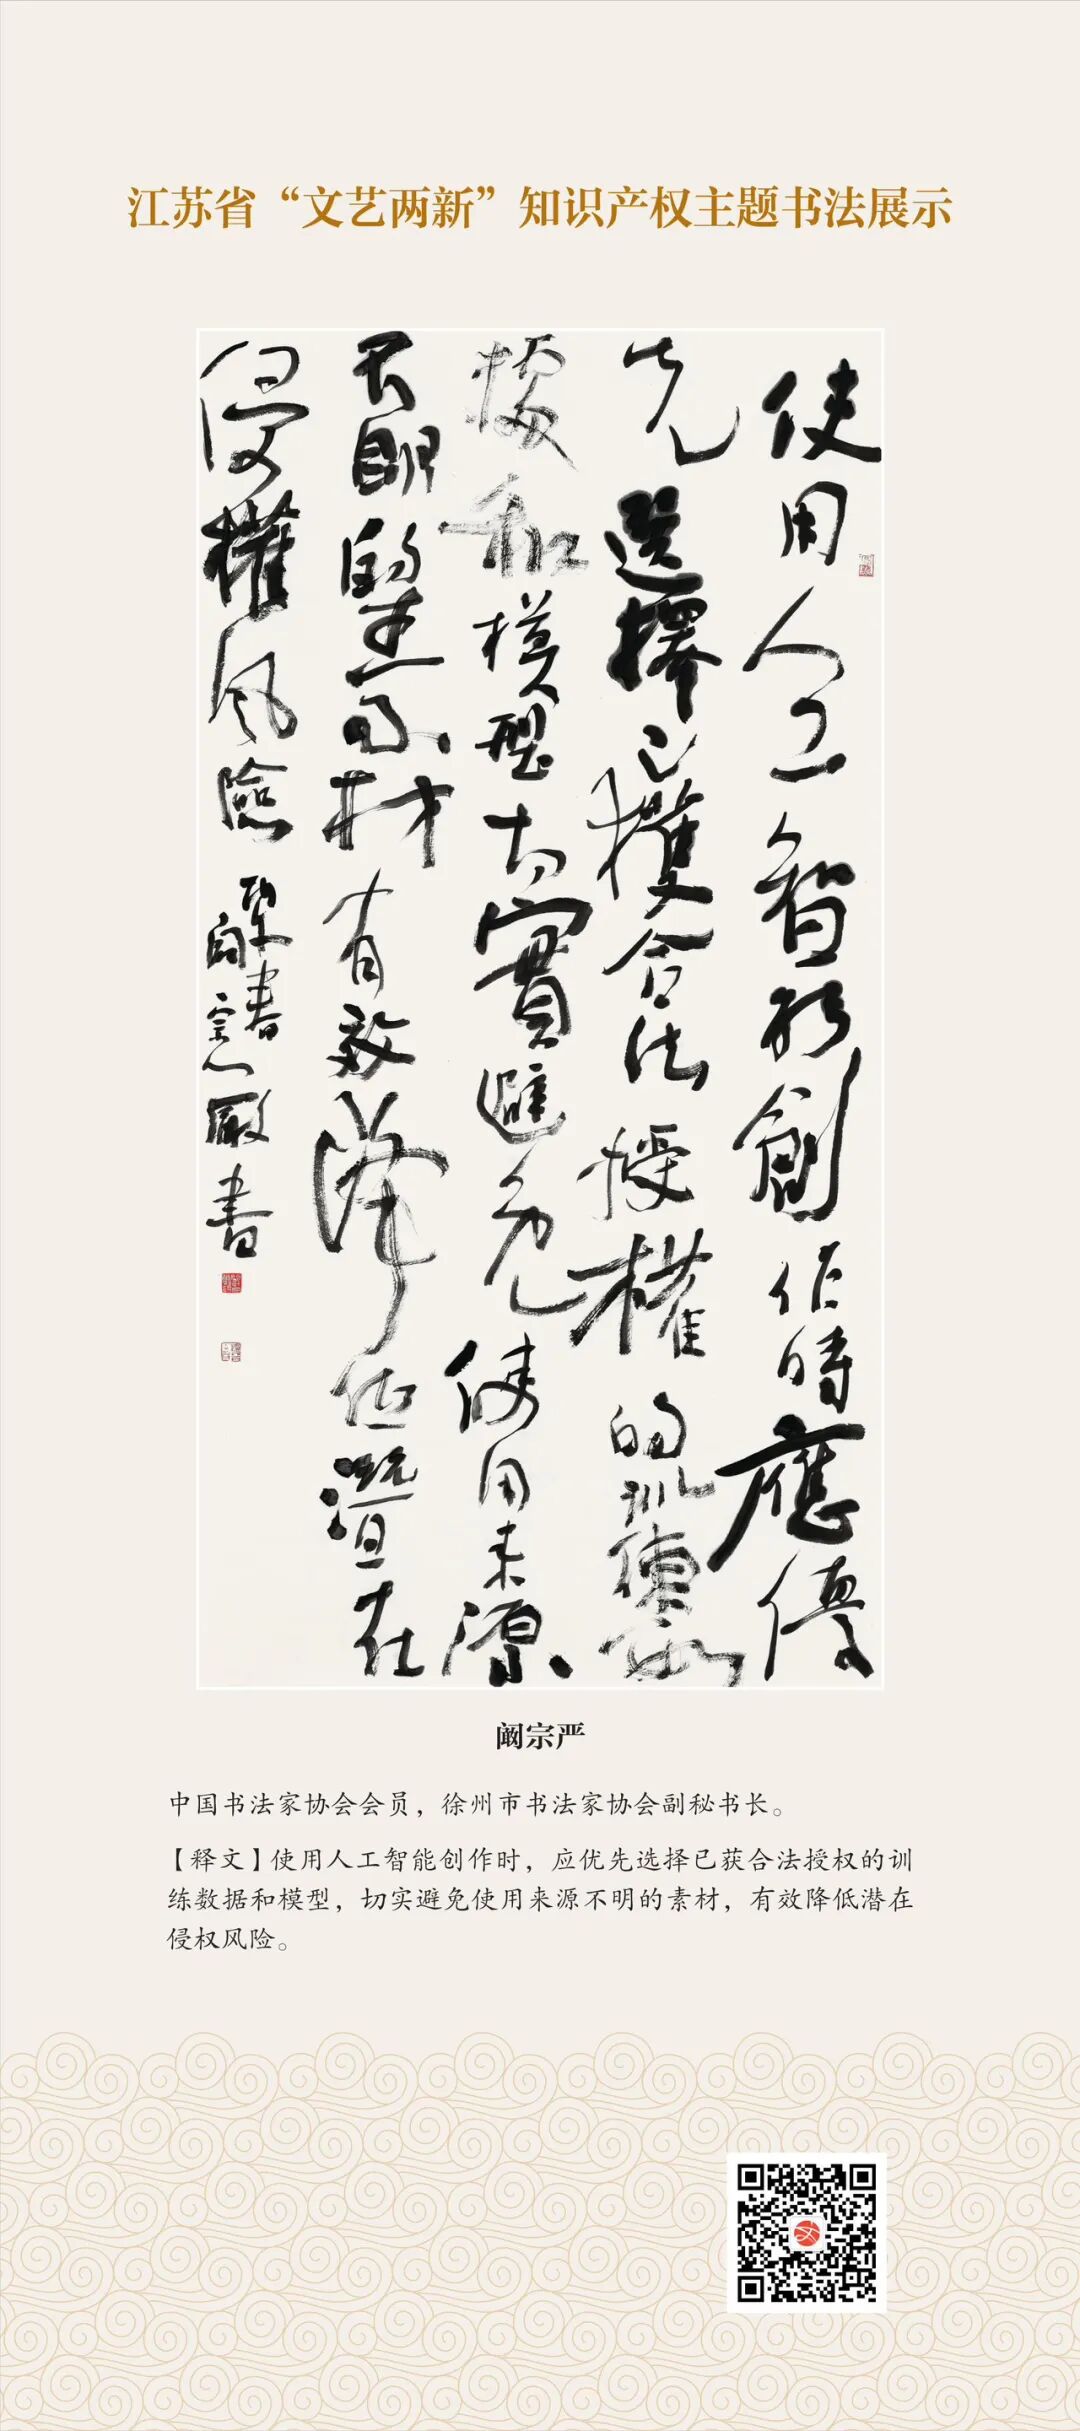 江苏省“文艺两新”知识产权主题书法展示
使用人工智能創作時應優
先選擇已獲合法授權的訓練數
據和模型切實避免使用来源
不明的素材有效降低潛在
侵權風險
闞宗嚴書
阚宗严
中国书法家协会会员，徐州市书法家协会副秘书长。
【释文】使用人工智能创作时，应优先选择已获合法授权的训
练数据和模型，切实避免使用来源不明的素材，有效降低潜在
侵权风险。